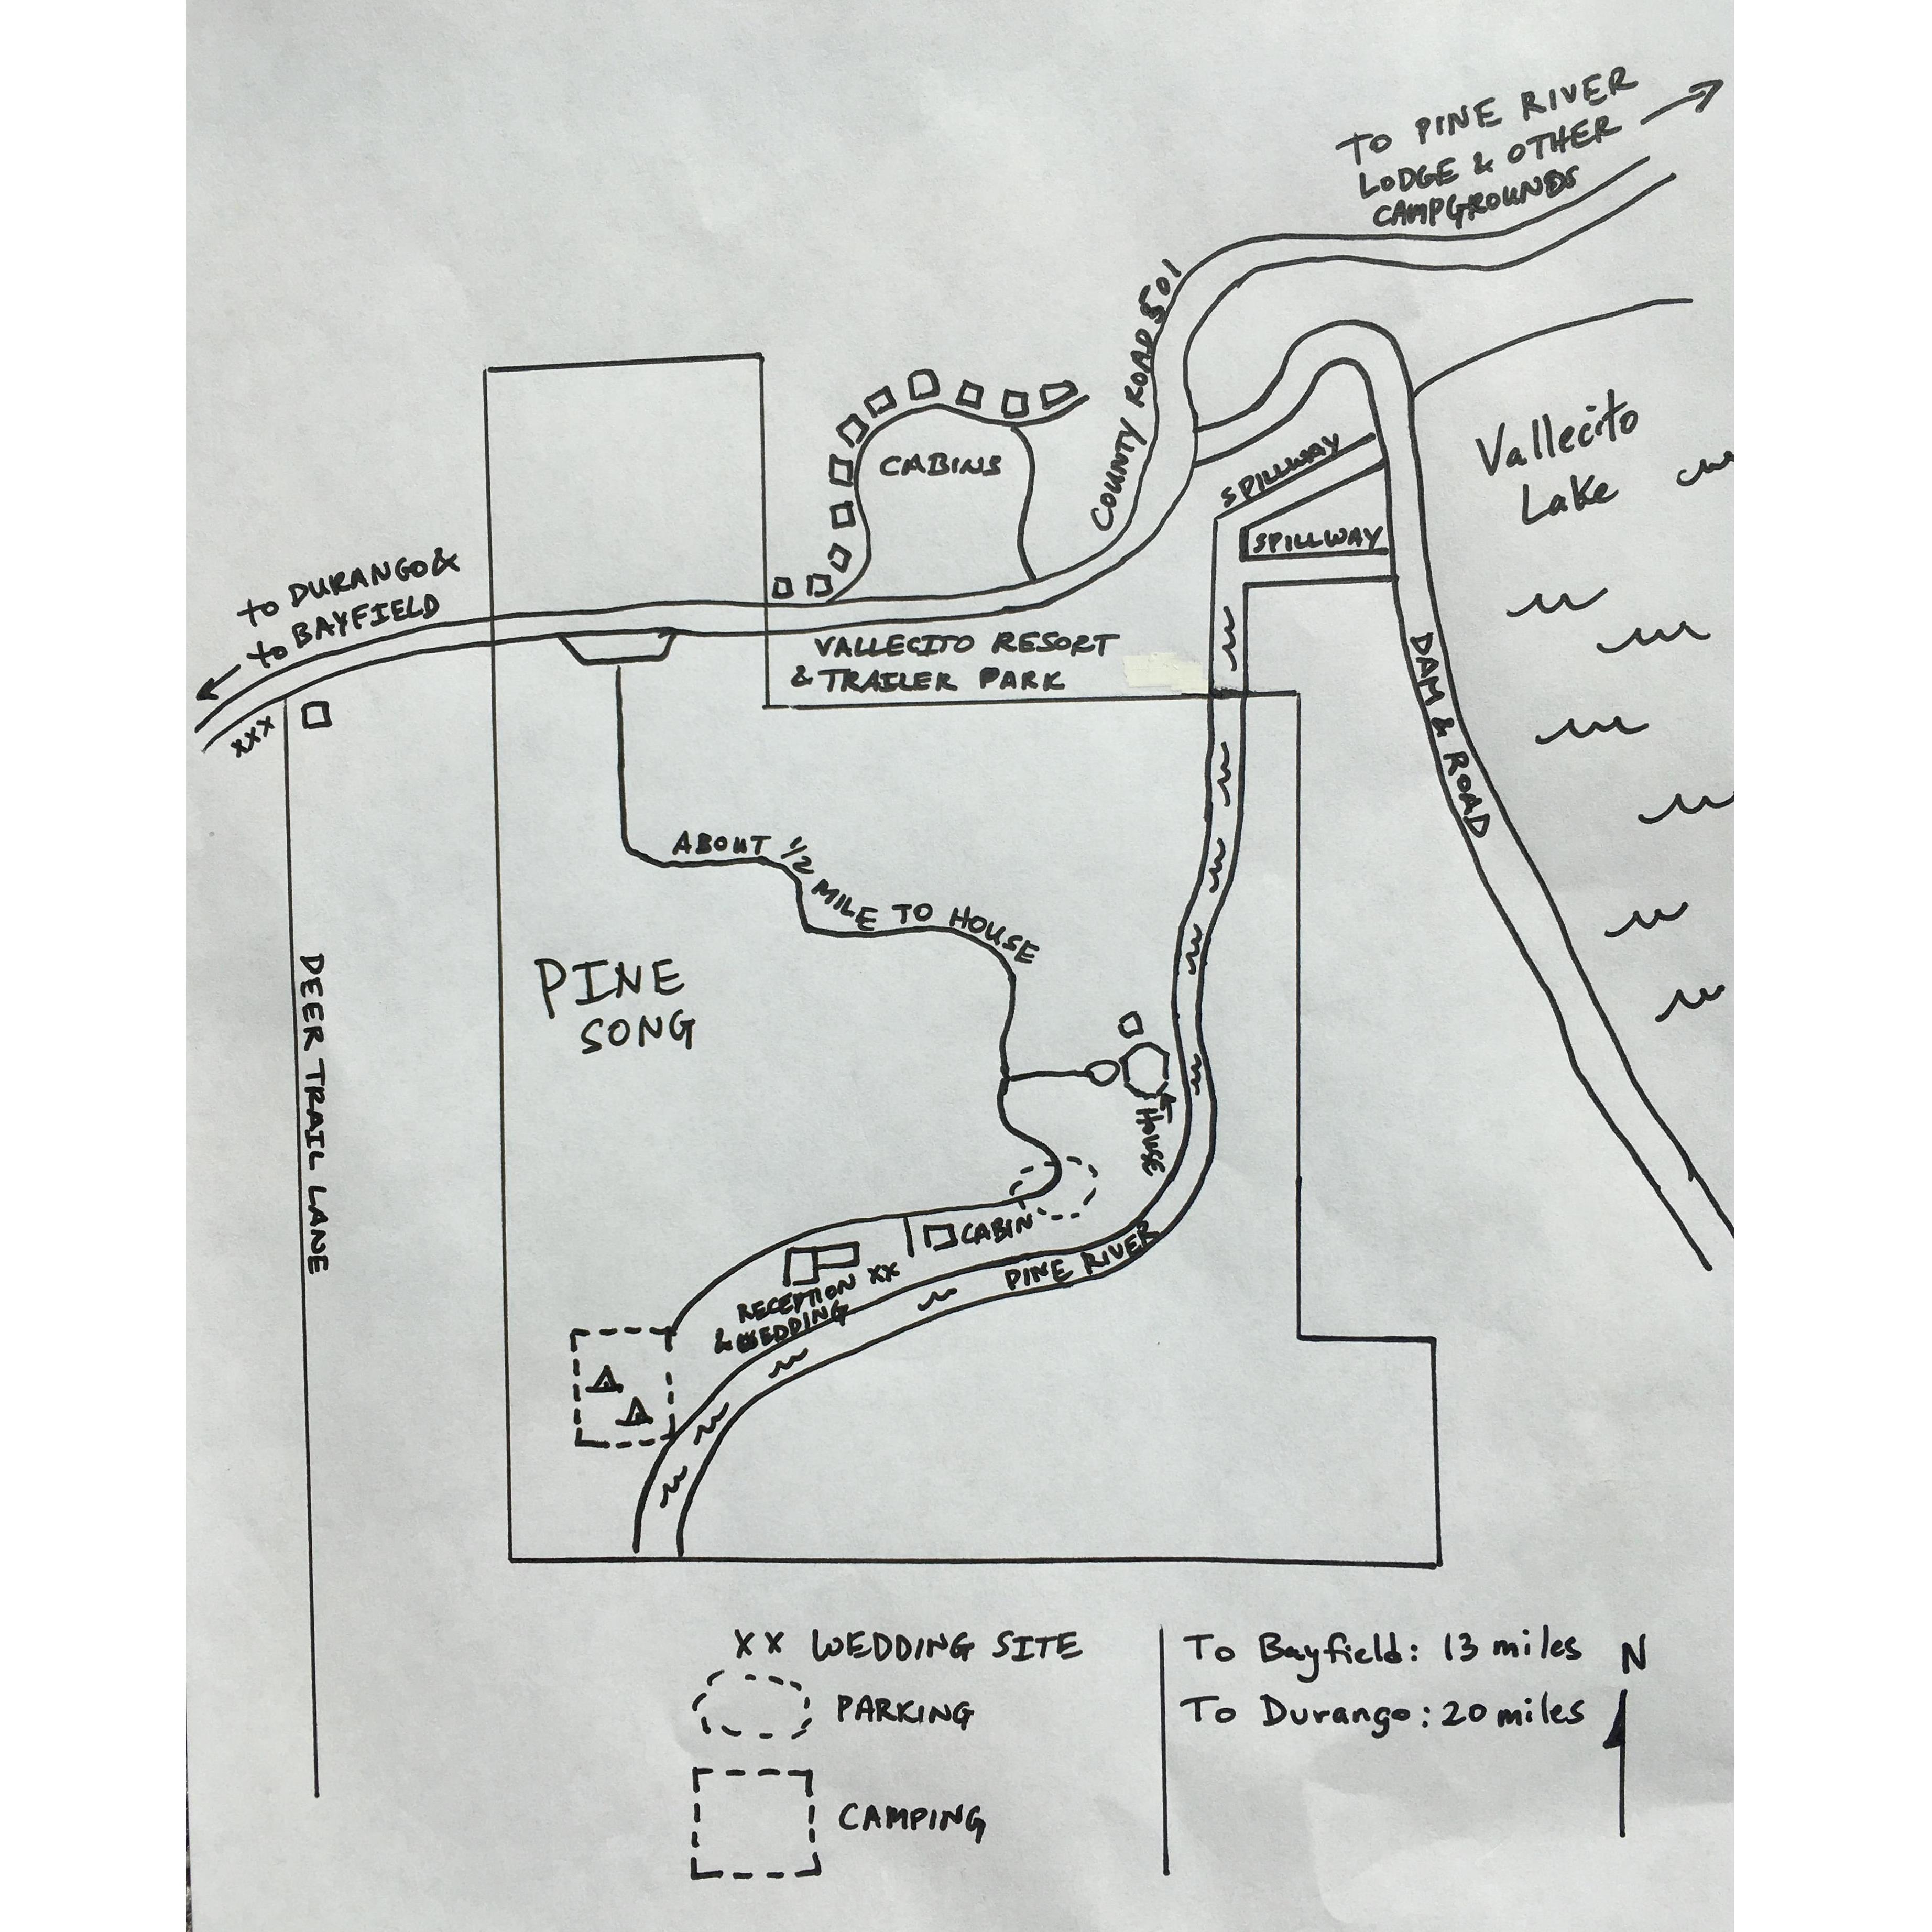 TO PINE RIVER
LODGE & OTHER
CAMPGROUNDS
COUNTY ROAD 501
CABINS
SPILLWAY
SPILLWAY
Vallecito
Lake
TO DURANGO &
TO BAYFIELD
XXX
VALLECITO RESORT
& TRAILER PARK
DAM & ROAD
ABOUT 1/2 MILE TO HOUSE
PINE
SONG
DEER TRAIL LANE
HOUSE
CABIN
PINE RIVER
RECEPTION XX
& WEDDING
XX WEDDING SITE
PARKING
CAMPING
To Bayfield: 13 miles
To Durango: 20 miles
N